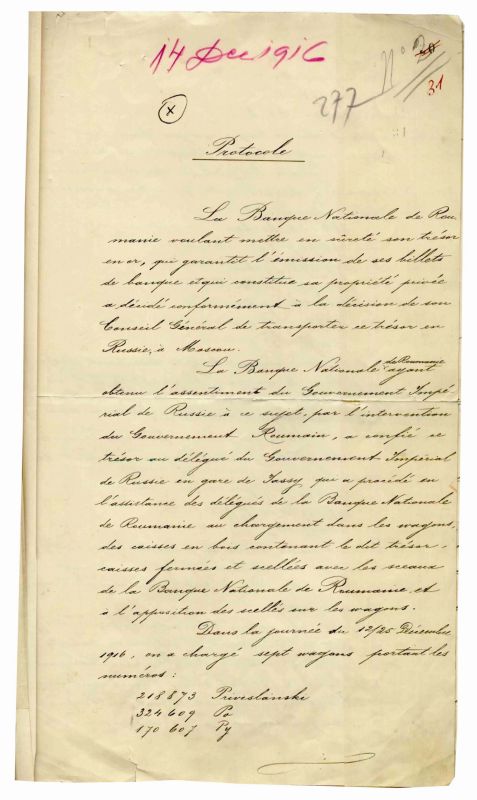 14 Dec 1916
277
N° 30
31
x
Protocole
La Banque Nationale de Rou-
manie voulant mettre en sûreté son trésor
en or, qui garantit l'émission de ses billets
de banque et qui constitue sa propriété privée
a décidé conformément à la décision de son
Conseil Général de transporter ce trésor en
Russie, à Moscou.
La Banque Nationale de Roumanie ayant
obtenu l'assentiment du Gouvernement Impé-
rial de Russie à ce sujet, par l'intervention
du Gouvernement Roumain, a confié ce
trésor au délégué du Gouvernement Impérial
de Russie en gare de Jassy qui a procédé en
l'assistance des délégués de la Banque Nationale
de Roumanie au chargement dans les wagons,
des caisses en bois contenant le dit trésor,
caisses fermées et scellées avec les sceaux
de la Banque Nationale de Roumanie et
à l'apposition des scellés sur les wagons.
Dans la journée du 12/25 Décembre
1916, on a chargé sept wagons portant les
numéros:
218873 Priveslanski
324609 Po
170607 Py